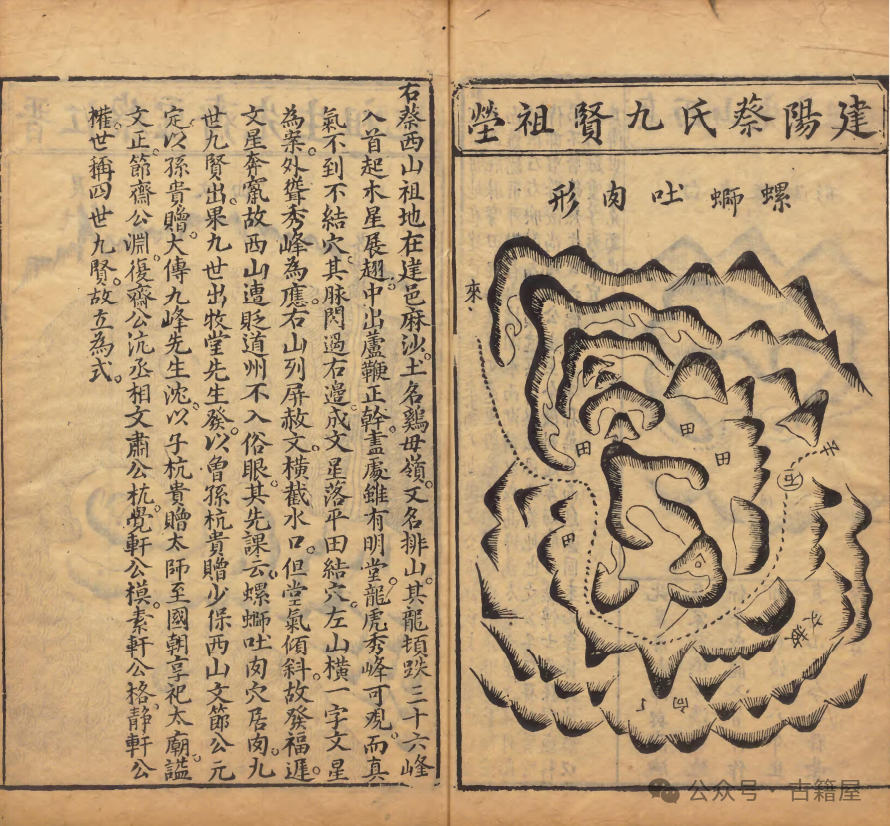 建陽蔡氏九賢祖塋
螺螄吐肉形
來
田
田
田
田
壬
丙
向
右蔡西山祖地在建邑麻沙。土名鷄母嶺。又名排山。其龍頓跌三十六峰
入首起木星展翅。中出蘆鞭正幹。盡處雖有明堂。龍虎秀峰可觀。而真
氣不到不結穴。其脉閃過右邊。成文星落平田結穴。左山橫一字文星
為案。外聳秀峰為應。右山列屏赦文。橫截水口。但堂氣傾斜。故發福遲。
文星奔竄。故西山遭貶道州。不入俗眼。其先課云。螺螄吐肉穴居肉。九
世九賢出。果九世出牧堂先生發。以曾孫杭貴贈少保西山文節公元
定。以孫貴贈大傳九峰先生沈。以子杭貴贈太師至國朝享祀太廟謚
文正。節齋公淵。復齋公沆。丞相文肅公杭。覺軒公模。素軒公格。静軒公
權。世稱四世九賢。故立為式。
公众号·古籍屋